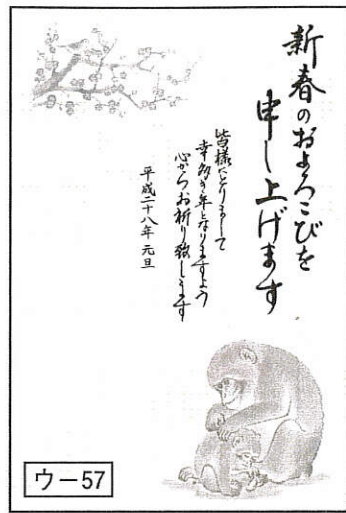 新春のおよろこびを
申し上げます
皆様にとりまして
幸多き年となりますよう
心からお祈り致します
平成二十八年 元旦
ウー57